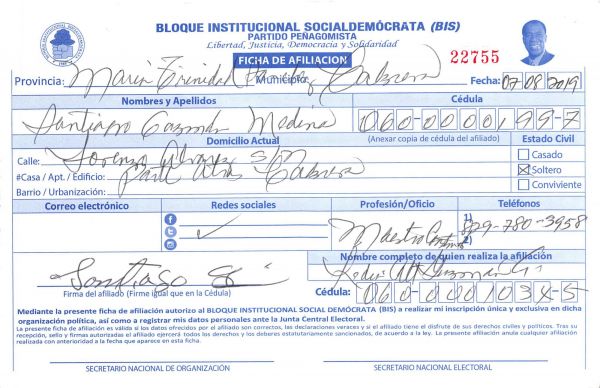 BLOQUE INSTITUCIONAL SOCIALDEMÓCRATA (BIS)
PARTIDO PEÑAGOMISTA
Libertad, Justicia, Democracia y Solidaridad
FICHA DE AFILIACION
22755
Provincia: Maria Trinidad Municipio: Cabrera Fecha: 07-08-2019
Nombres y Apellidos Cédula
Santiago Guzmán Medina 060-0000199-7
Domicilio Actual (Anexar copia de cédula del afiliado) Estado Civil
Calle: Lorenzo Alvarez S/N
Casado
#Casa / Apt. / Edificio: Parte Atras Cabrera
Soltero
Barrio / Urbanización:
Conviviente
Correo electrónico Redes sociales Profesión/Oficio Teléfonos
Maestro 1) 829-780-3958
2)
Nombre completo de quien realiza la afiliación
Santiago
Firma del afiliado (Firme igual que en la Cédula)
Cédula: 060-0001034-5
Mediante la presente ficha de afiliación autorizo al BLOQUE INSTITUCIONAL SOCIAL DEMÓCRATA (BIS) a realizar mi inscripción única y exclusiva en dicha
organización política, así como a registrar mis datos personales ante la Junta Central Electoral.
La presente filiación es valida si los datos ofrecidos por el afiliado son correctos, las declaraciones veraces y si el afiliado tiene el disfrute de sus derechos civiles y políticos. Tras su
recepción, sello y firmas autorizadas el afiliado ejercerá todos los derechos y los deberes estatutariamente sancionados, de acuerdo a la ley. La presente afiliación anula cualquier afiliación
realizada con anterioridad a la fecha que aparece en esta ficha.
SECRETARIO NACIONAL DE ORGANIZACIÓN SECRETARIO NACIONAL ELECTORAL